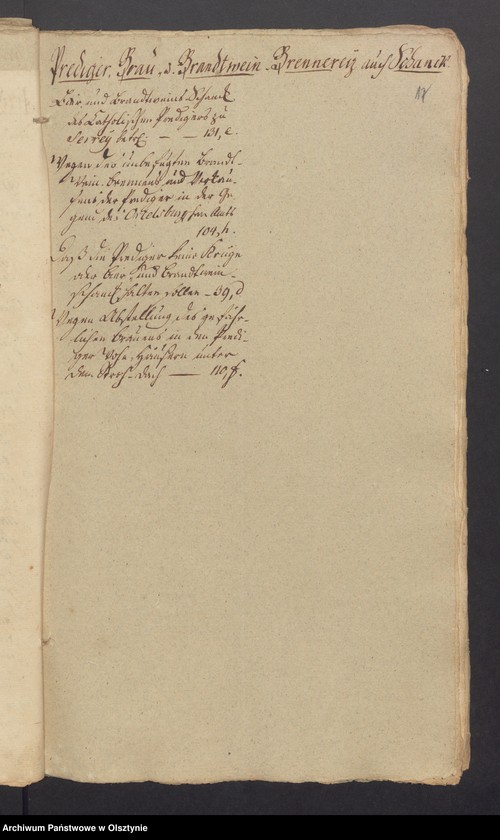 Prediger Brau, u. Brandtwein Brennerey auch Schanck
17
Bier und Brandtweins Schanck
des Catholischen Predigers zu
betrf. — — 131, c.
Wegen des unbefugten Brandt-
wein brennens und Verkau-
fens der Prediger in der Ge-
gend des Ortelsburgschen Amts
104, h.
Daß die Prediger keine Krüge
oder Bier und Brandtwein-
schanck halten sollen — 39, d
Wegen Abstellung des gefähr-
lichen Brauens in den Predi-
ger Häusern unter
dem Stroh-Dach — 110, f.
Archiwum Państwowe w Olsztynie